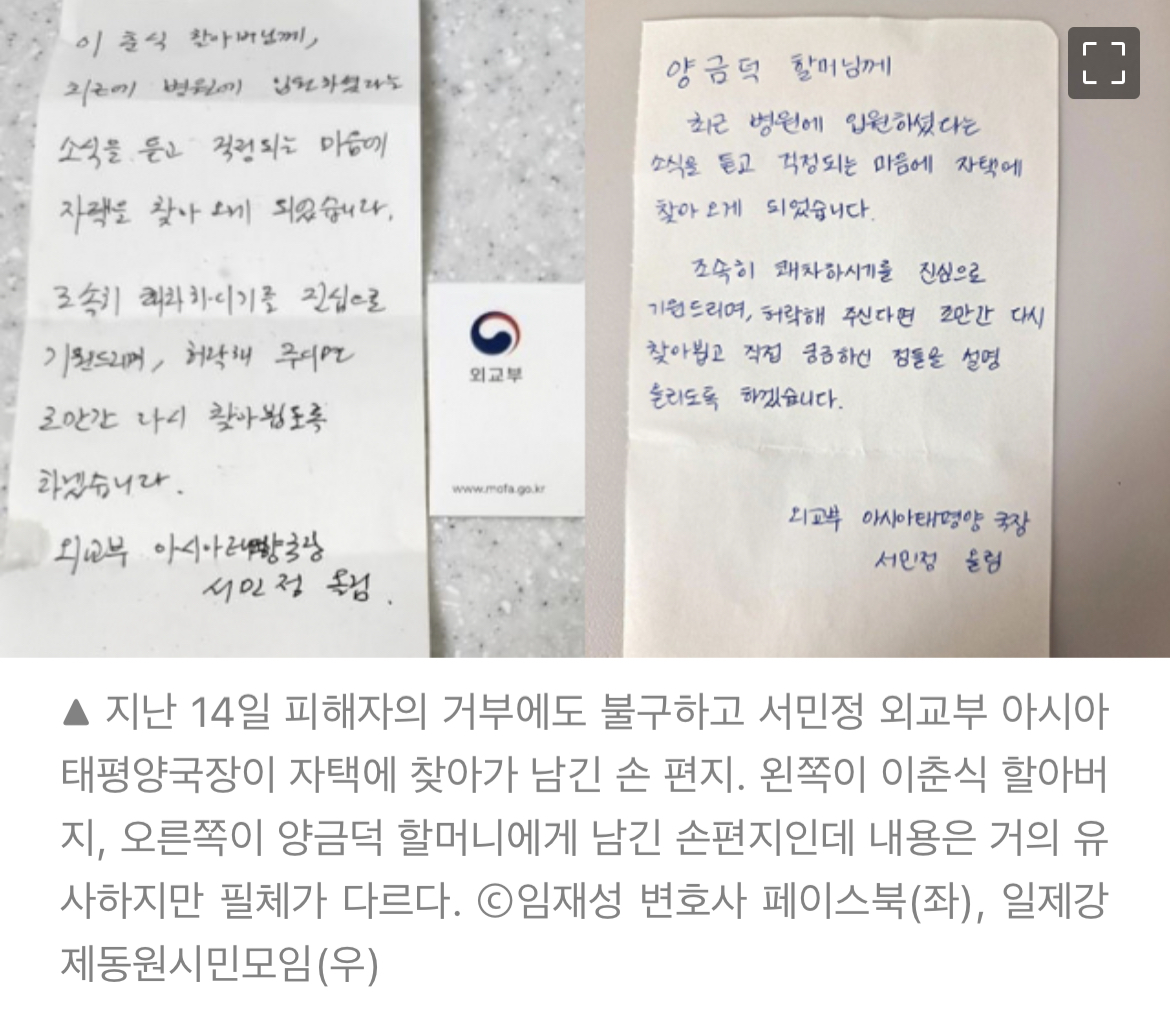 이 춘식 할아버님께,
최근에 병원에 입원하셨다는
소식을 듣고 걱정되는 마음에
자택을 찾아 오게 되었습니다.
조속히 쾌차하시기를 진심으로
기원드리며, 허락해 주시면
조만간 다시 찾아뵙도록
하겠습니다.
외교부 아시아태평양국장
서민정 올림.
외교부
www.mofa.go.kr
양금덕 할머님께
최근 병원에 입원하셨다는
소식을 듣고 걱정되는 마음에 자택에
찾아 오게 되었습니다.
조속히 쾌차하시기를 진심으로
기원드리며, 허락해 주신다면 조만간 다시
찾아뵙고 직접 궁금하신 점들을 설명
올리도록 하겠습니다.
외교부 아시아태평양 국장
서민정 올림
▲ 지난 14일 피해자의 거부에도 불구하고 서민정 외교부 아시아
태평양국장이 자택에 찾아가 남긴 손 편지. 왼쪽이 이춘식 할아버
지, 오른쪽이 양금덕 할머니에게 남긴 손편지인데 내용은 거의 유
사하지만 필체가 다르다. ©임재성 변호사 페이스북(좌), 일제강
제동원시민모임(우)